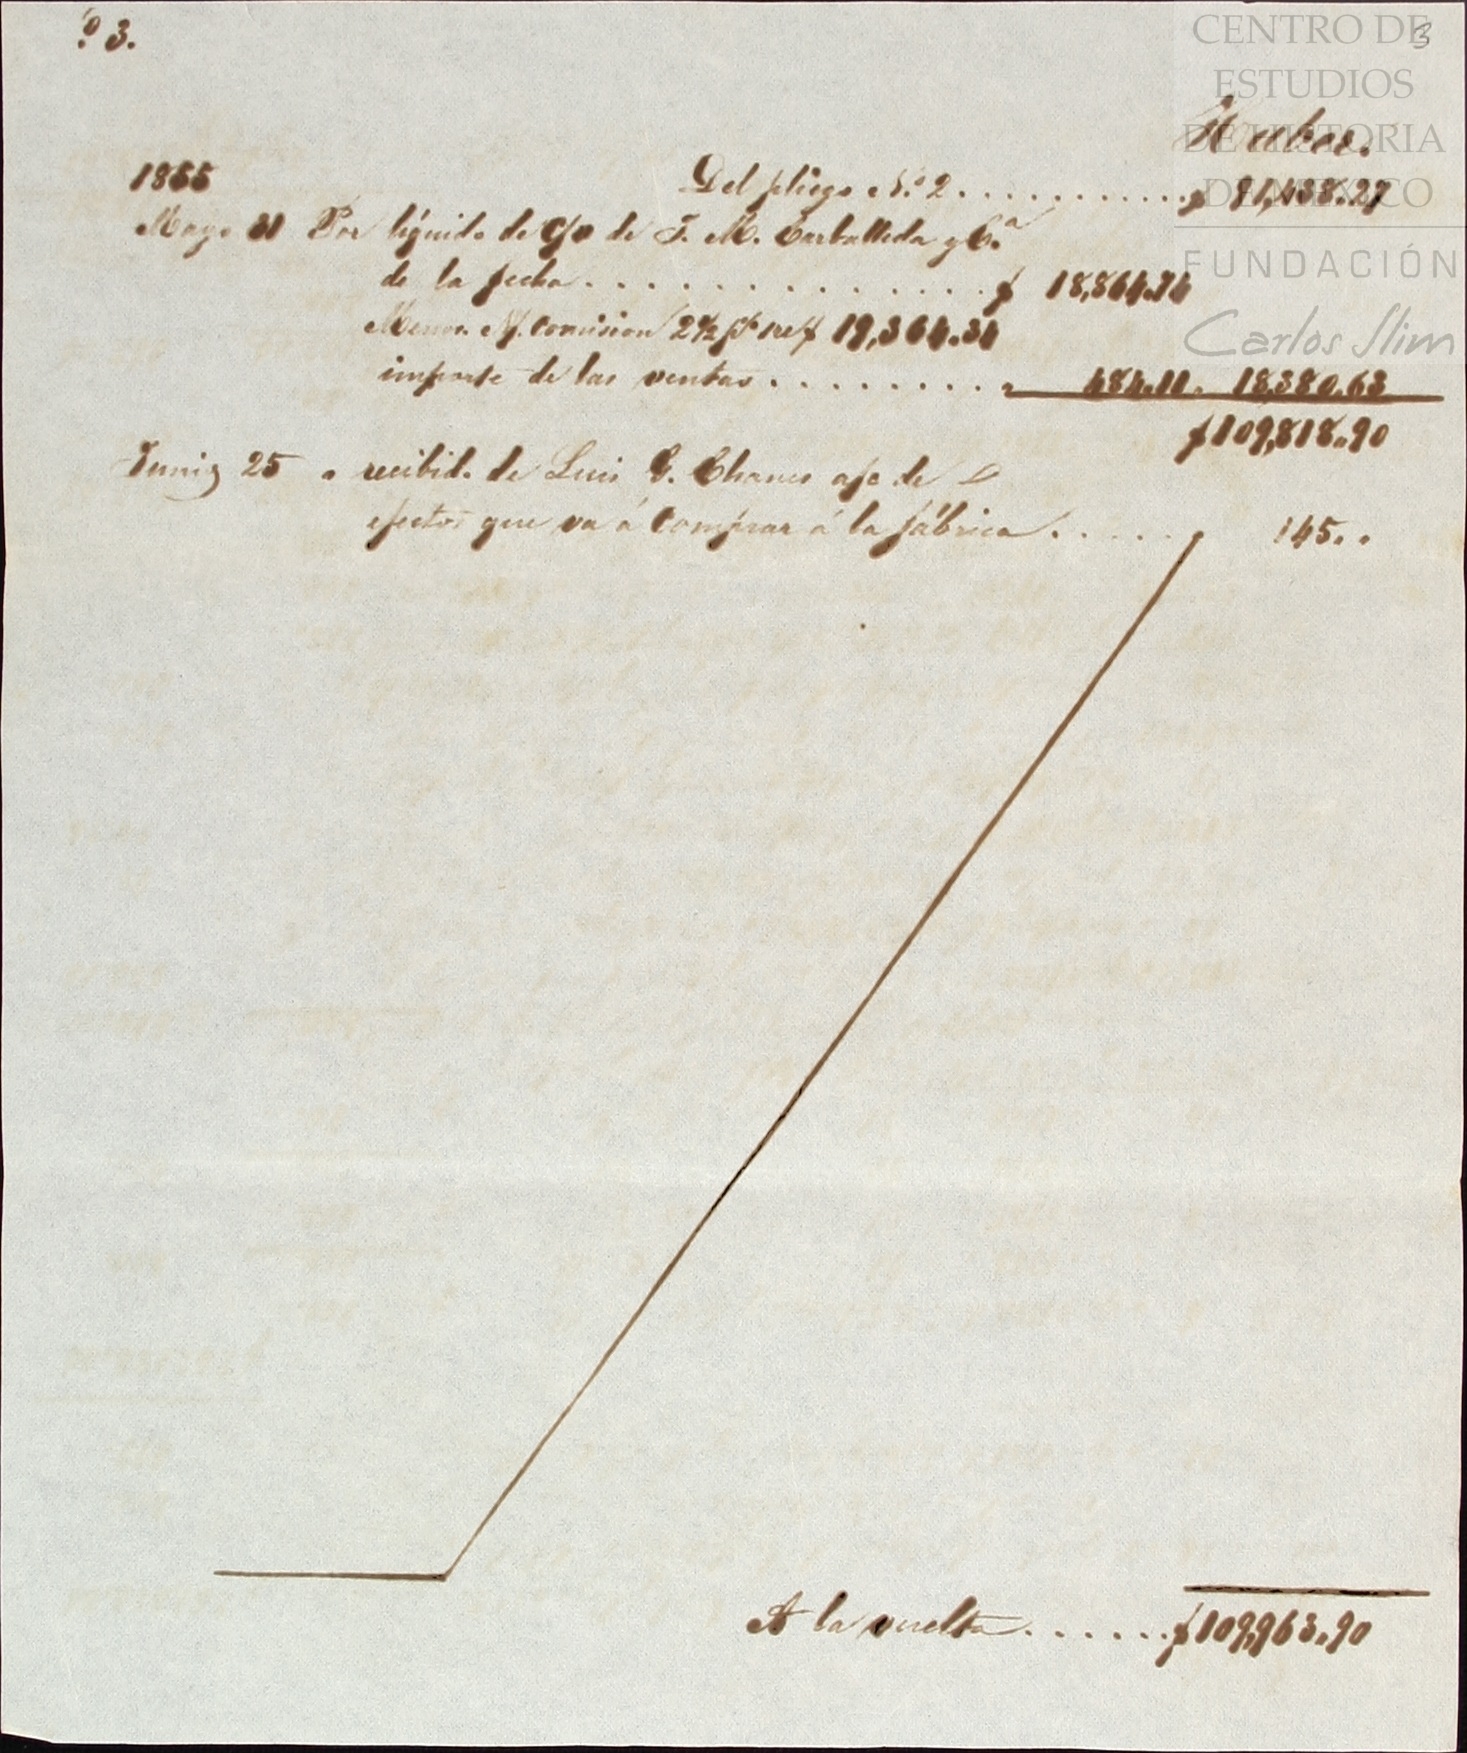 º 3.
3
CENTRO DE
ESTUDIOS
DE HISTORIA
DE MÉXICO
FUNDACIÓN
Carlos Slim
Haber.
1855 Del pliego N.º 2 . . . . . . . . . . . $ 91,438.27
Mayo 31 Por líquido de c/v de J. M. Carballeda y C.ª
de la fecha . . . . . . . . . . . . . . . $ 18,864.74
Menos N/. comision 2½ p% sre $ 19,364.34
importe de las ventas . . . . . . . . . . 484.11. 18,380.63
$ 109,818.90
Junio 25 " recibido de Luis G. Chaves a/c de
efectos que va á comprar á la fábrica . . . . . . 145. .
A la vuelta . . . . . . $ 109,963.90